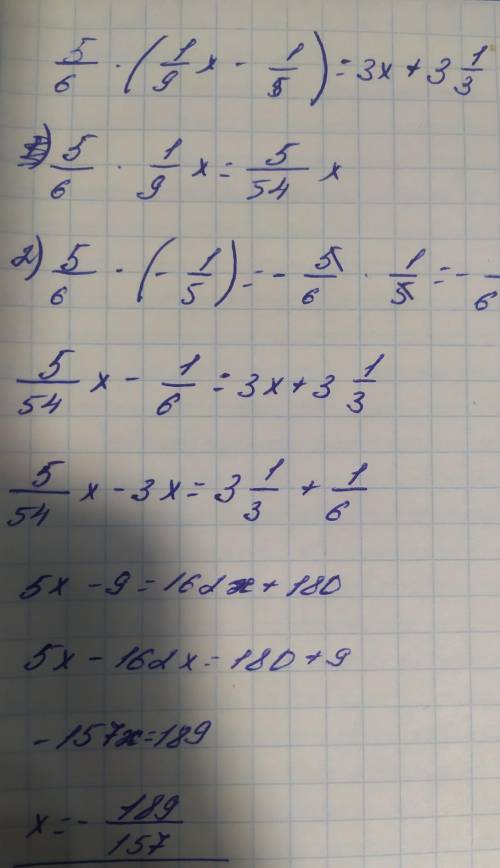 5/6 · (1/9 x - 1/5) = 3x + 3 1/3
5/6 · 1/9 x = 5/54 x
2) 5/6 · (- 1/5) = - 5/6 · 1/5 = - /6
5/54 x - 1/6 = 3x + 3 1/3
5/54 x - 3x = 3 1/3 + 1/6
5x - 9 = 162x + 180
5x - 162x = 180 + 9
- 157x = 189
x = - 189/157